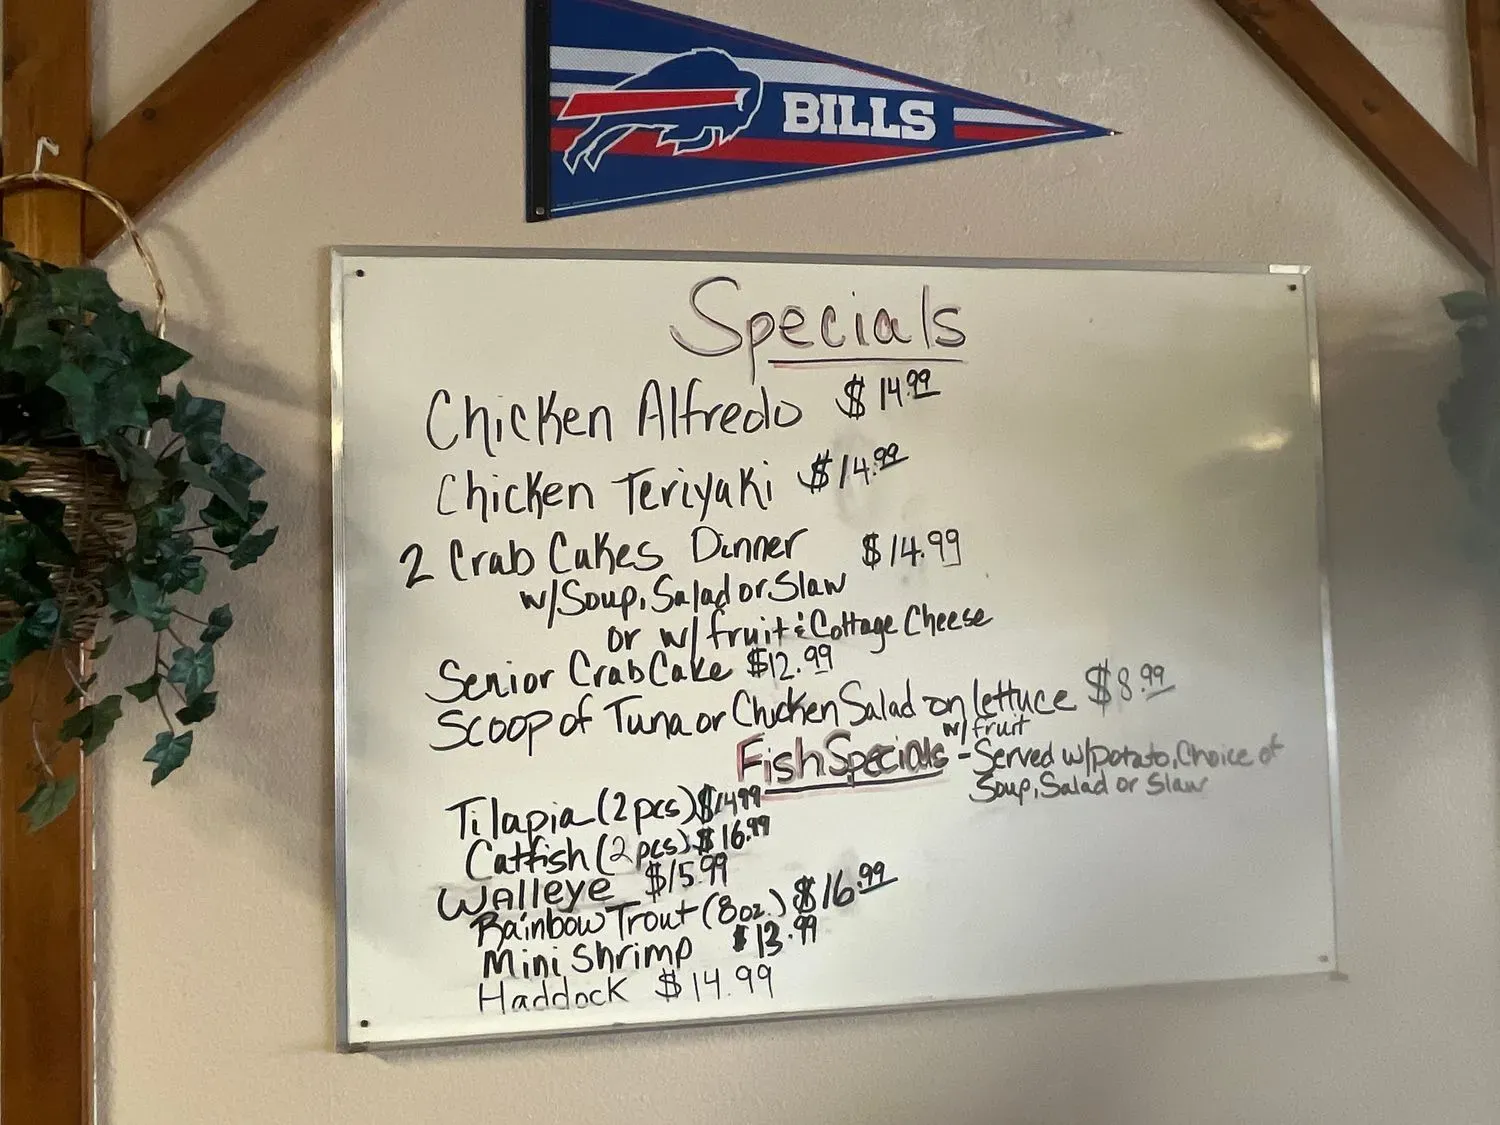 BILLS
Specials
Chicken Alfredo $14.99
Chicken Teriyaki $14.99
2 Crab Cakes Dinner $14.99
w/Soup, Salad or Slaw
or w/ fruit & Cottage Cheese
Senior Crab Cake $12.99
Scoop of Tuna or Chicken Salad on lettuce $8.99
w/ fruit
Fish Specials - Served w/potato, Choice of
Soup, Salad or Slaw
Tilapia (2 pcs) $14.99
Catfish (2 pcs) $16.99
Walleye $15.99
Rainbow Trout (8oz.) $16.99
Mini Shrimp $13.99
Haddock $14.99